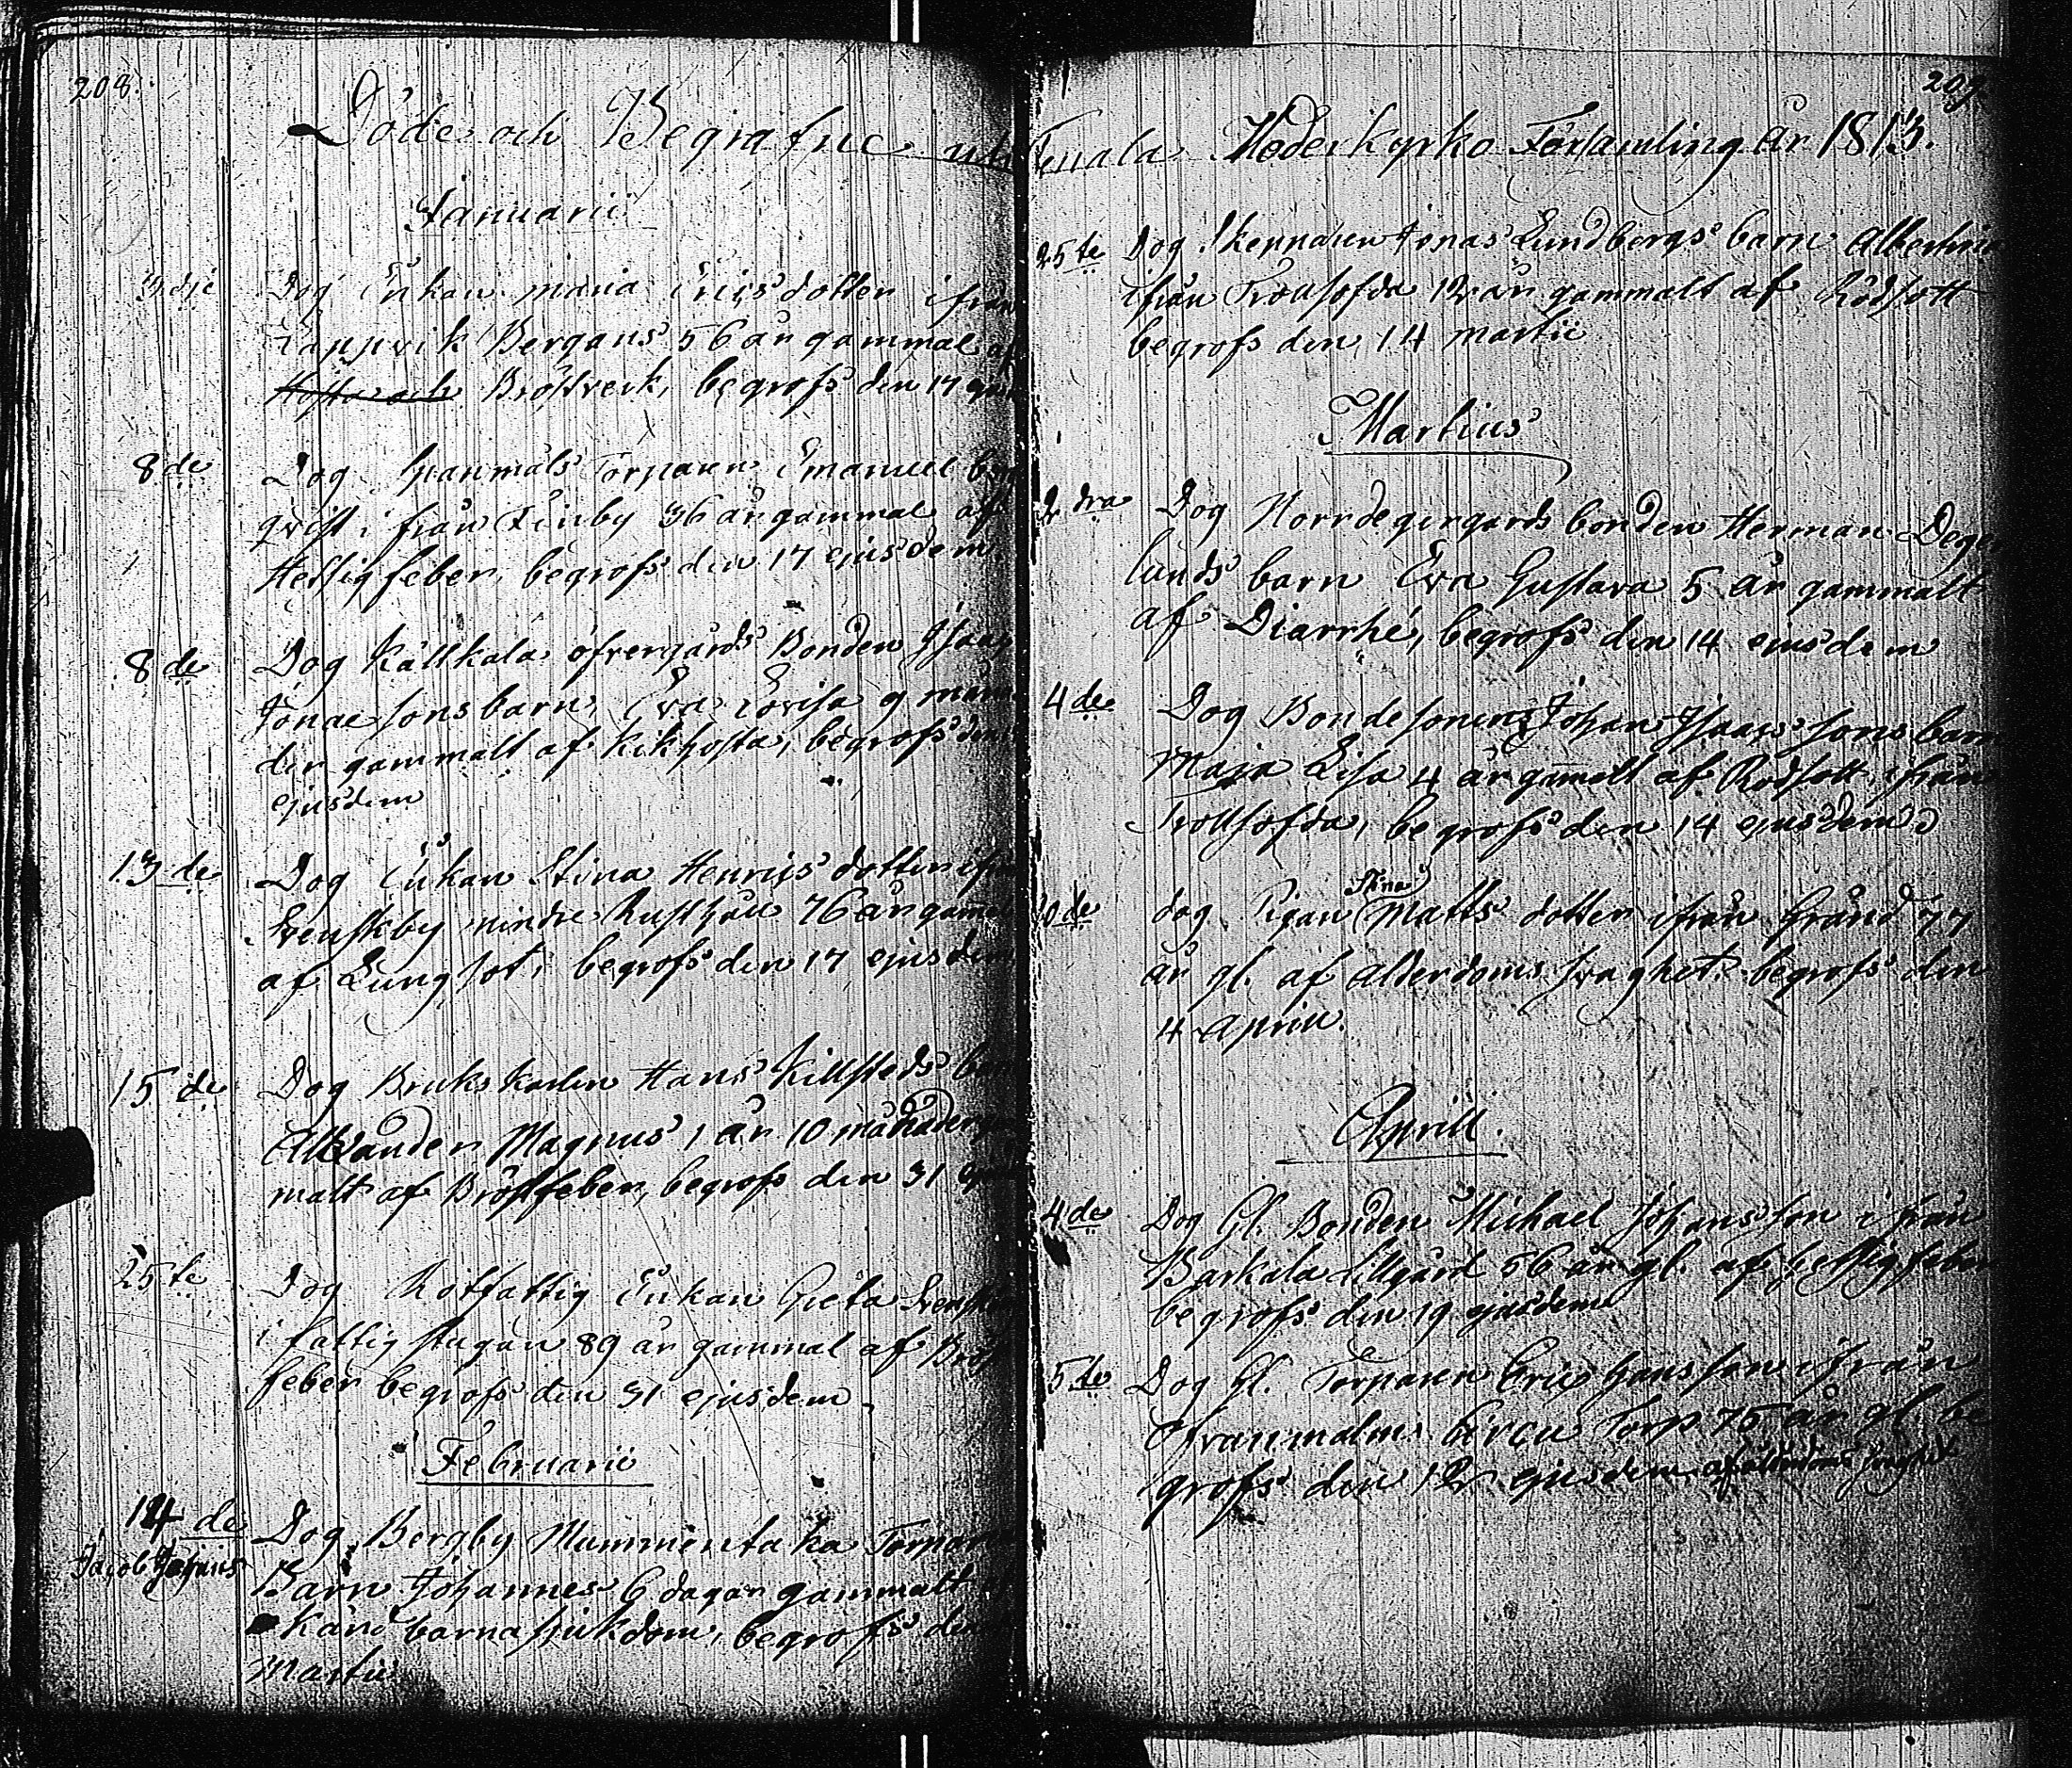 208.
Döde och Begrafne uti
Januarii
3 dje Dog Enkan Maria Ericsdotter ifrån
Lappvik Bergans 56 år gammal af
Hosta och Bröstverk, begrofs den 17
8 de Dog Spanmåls Torparen Emanuel
qvist ifrån Finby 36 år gammal af
Hettig feber, begrofs den 17 ejusdem
8 de Dog Källkala öfvergårds Bonden Isaac
Jonae sons barn, Eva Lovisa 9 måna
der gammalt af Kikhosta, begrofs den
ejusdem
13 de Dog Enkan Stina Henricsdotter ifrån
Svenskby mindre Rusthåll 76 år gam
af Lungsot, begrofs den 17 ejusdem
15 de Dog Bruks Karlen Hans Killsteds
Alexander Magnus 1 år 10 månader
malt af Bröstfeber, begrofs den 31
25 te Dog Rotfattig Enkan Greta
i fattigstugan 89 år gammal af Bröst
feber begrofs den 31 ejusdem
Februarii
14 de Dog Bergby Mummintaka Torparen
Jacob
Barn Johannes 6 dagar gammalt
okänd barnasjukdom, begrofs den
Martii
209
Tenala Moderkyrko Församling år 1813.
25 te Dog Skepparen Jonas Lundbergs barn Albertina
ifrån Trollshofda 12 år gammalt af Rödsott
begrofs den 14 Martii
Martius
2 dra Dog Norrdegergårds bonden Herman Deger
lunds barn Eva Gustava 5 år gammalt
af Diarrhé, begrofs den 14 ejusdem
4 de Dog Bonde sonens Johan Isaacs sons barn
Maja Lisa 4 år gamalt af Rödsott ifrån
Trollshofda, begrofs den 14 ejusdem
10 de dog Pigan Stina Matts dotter ifrån Gränd 77
år gl. af ålderdoms svaghet begrofs den
4 Aprill.
Aprill.
4 de Dog Gl. Bonden Michael Johansson ifrån
Barkala Lillgård 56 år gl. af hettig feber
begrofs den 19 ejusdem
5 te Dog Gl. Torparen Eric Hansson ifrån
Ofvanmalm Torp 75 år gl. be
grofs den 12 ejusdem af ålderdoms svaghet